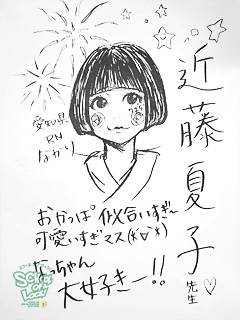 近藤夏子先生♡
愛知県
RN
なかり
おかっぱ似合いすぎ〜
可愛いすぎマス(*'∀'*)
なっちゃん
大好きー!!